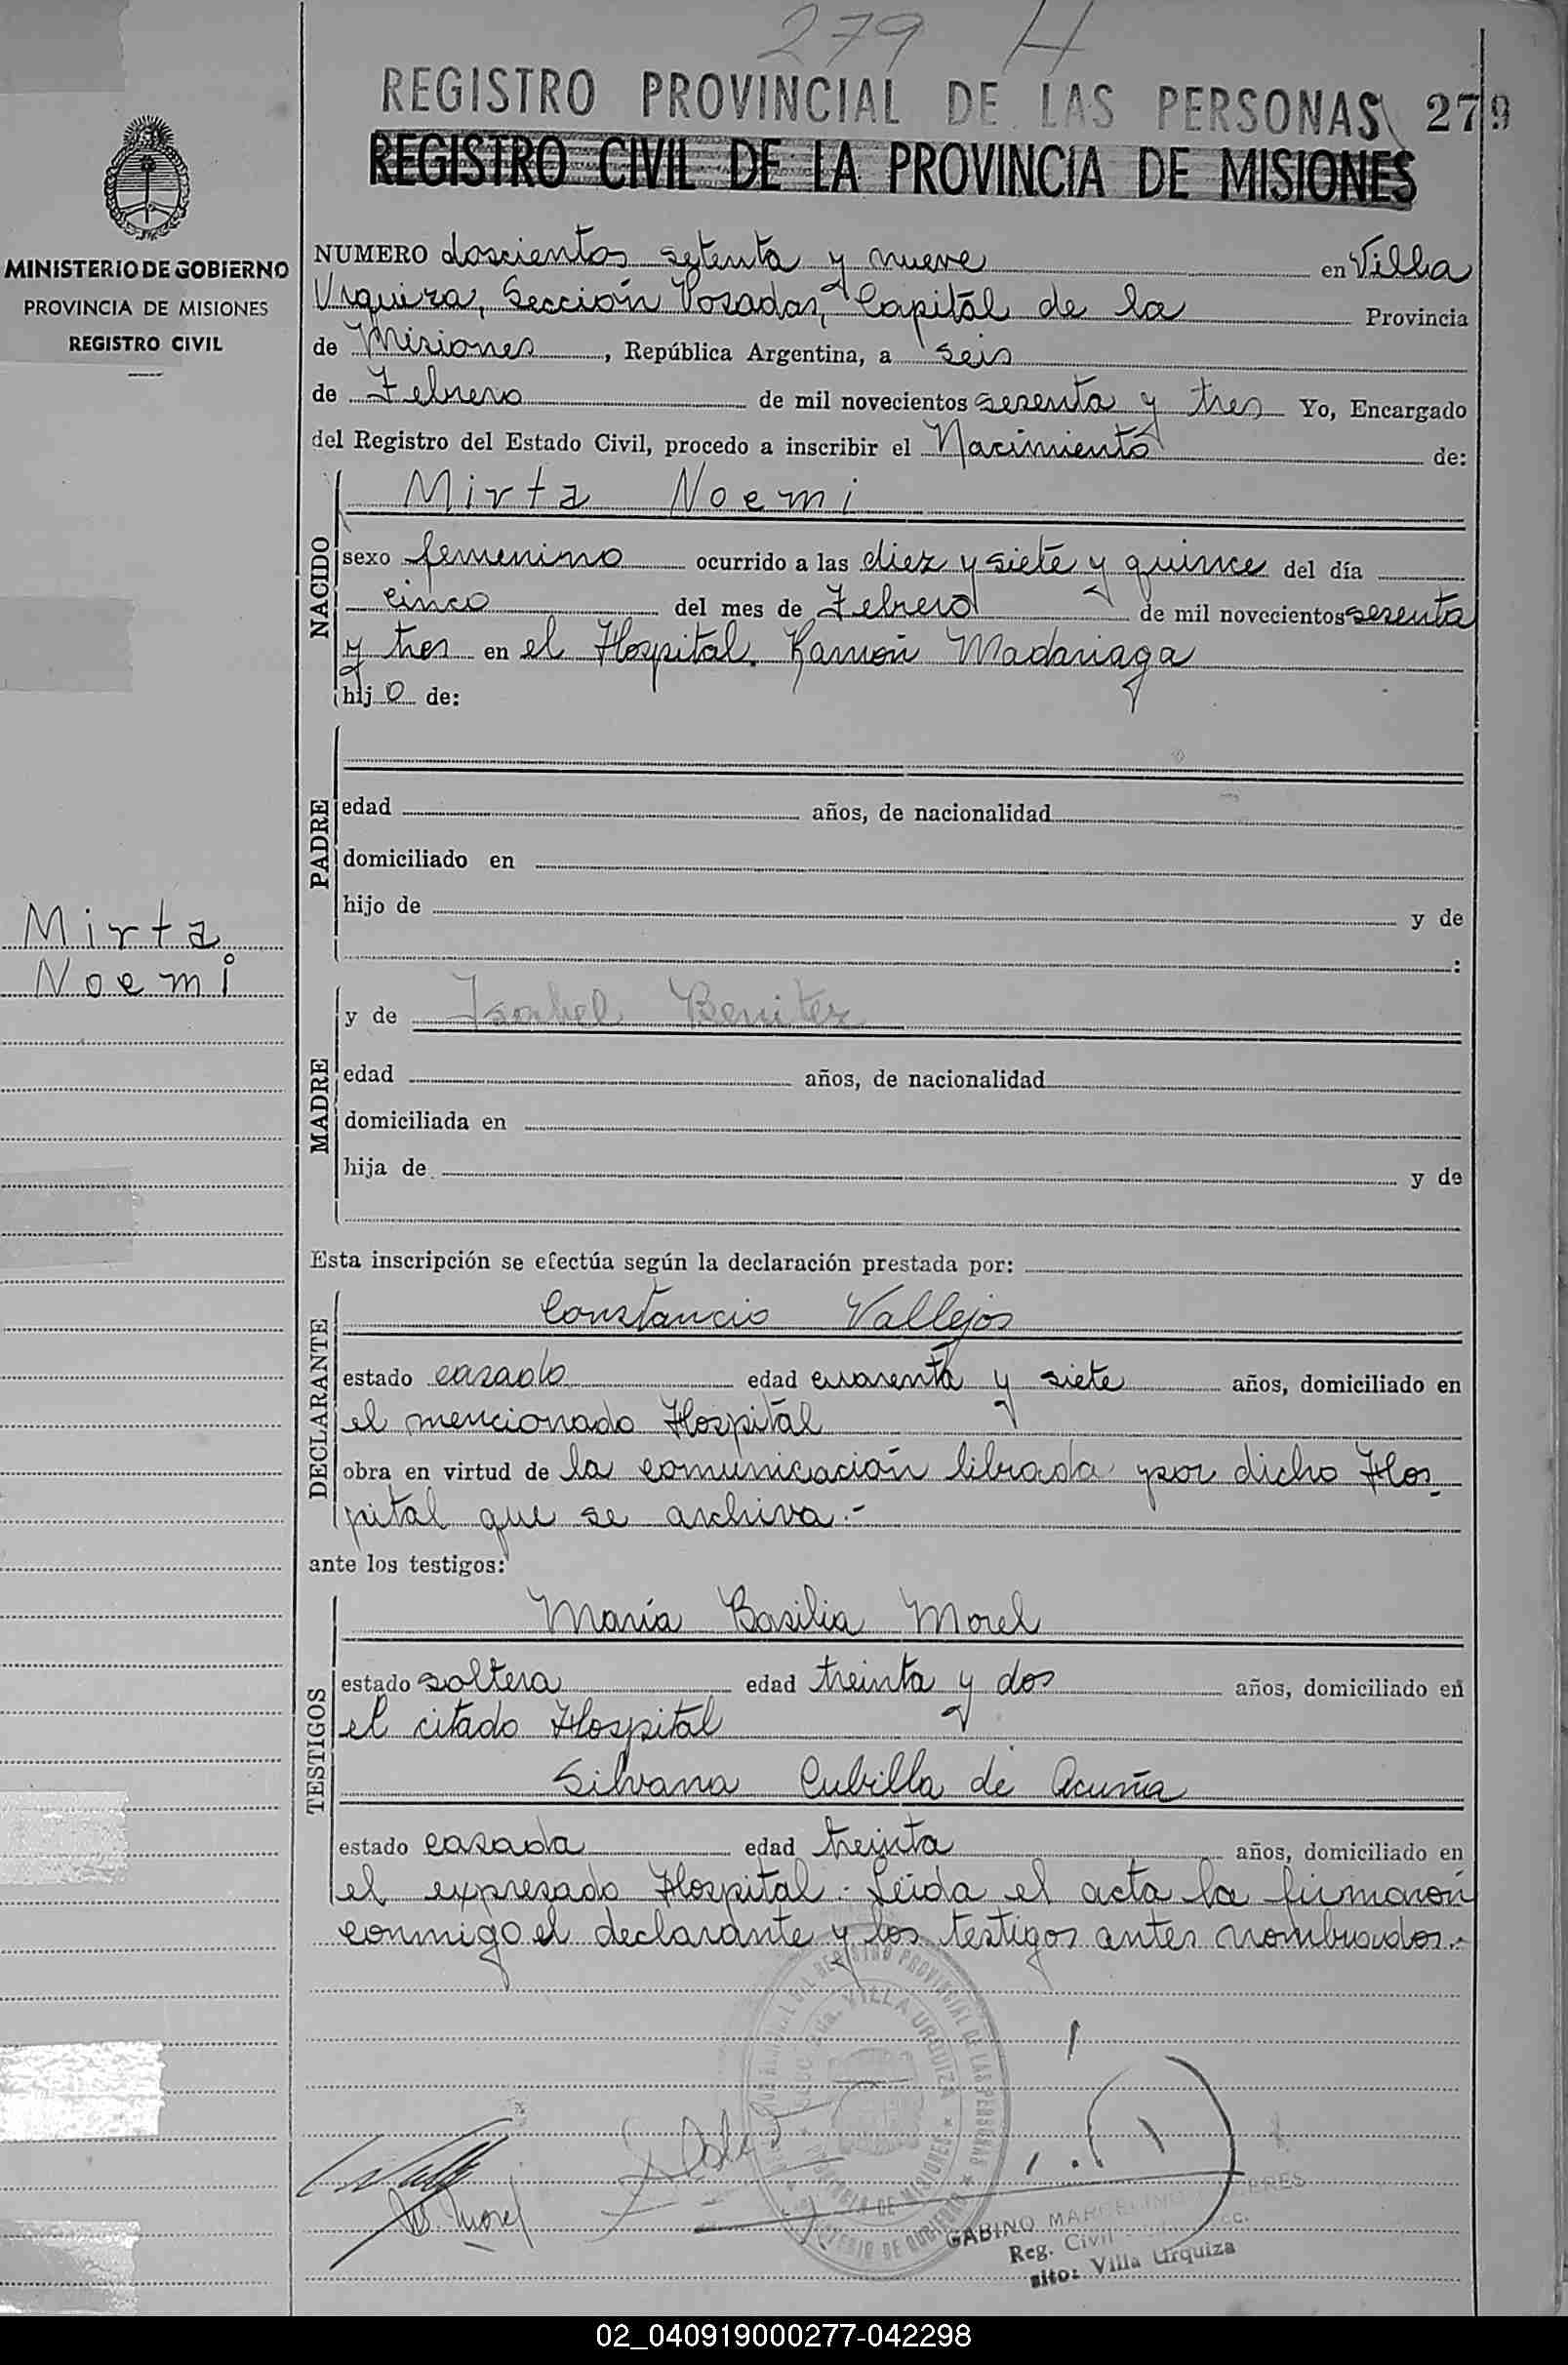 279 H
REGISTRO PROVINCIAL DE LAS PERSONAS 279
REGISTRO CIVIL DE LA PROVINCIA DE MISIONES
MINISTERIO DE GOBIERNO
PROVINCIA DE MISIONES
REGISTRO CIVIL
NUMERO doscientos setenta y nueve en Villa
Urquiza, Sección Posadas, Capital de la Provincia
de Misiones, República Argentina, a seis
de Febrero de mil novecientos sesenta y tres Yo, Encargado
del Registro del Estado Civil, procedo a inscribir el Nacimiento de:
Mirta Noemi
NACIDO
sexo femenino ocurrido a las diez y siete y quince del día
cinco del mes de Febrero de mil novecientos sesenta
y tres en el Hospital. Ramón Madariaga
hij o de:
PADRE
edad años, de nacionalidad
domiciliado en
hijo de y de
:
Mirta
Noemi
MADRE
y de Isabel Benitez
edad años, de nacionalidad
domiciliada en
hija de y de
Esta inscripción se efectúa según la declaración prestada por:
DECLARANTE
Constancio Vallejos
estado casado edad cuarenta y siete años, domiciliado en
el mencionado Hospital
obra en virtud de la comunicación librada por dicho Hos-
pital que se archiva.-
ante los testigos:
TESTIGOS
María Basilia Morel
estado soltera edad treinta y dos años, domiciliado en
el citado Hospital
Silvana Cubilla de Acuña
estado casada edad treinta años, domiciliado en
el expresado Hospital. Leida el acta la firmaron
conmigo el declarante y los testigos antes nombrados.-
REGISTRO PROVINCIAL DE LAS PERSONAS
VILLA URQUIZA
PROVINCIA DE MISIONES
B. Morel
GABINO
Reg. Civil
sito: Villa Urquiza
02_040919000277-042298